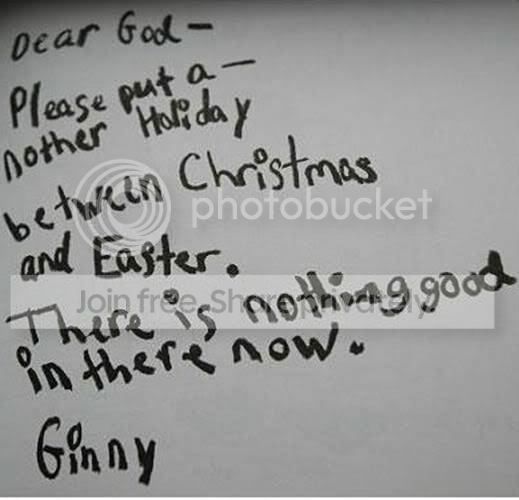 Dear God-
Please put a-
nother Holiday
between Christmas
and Easter.
There is nothing good
in there now.
Ginny
photobucket
Join free. Share privately